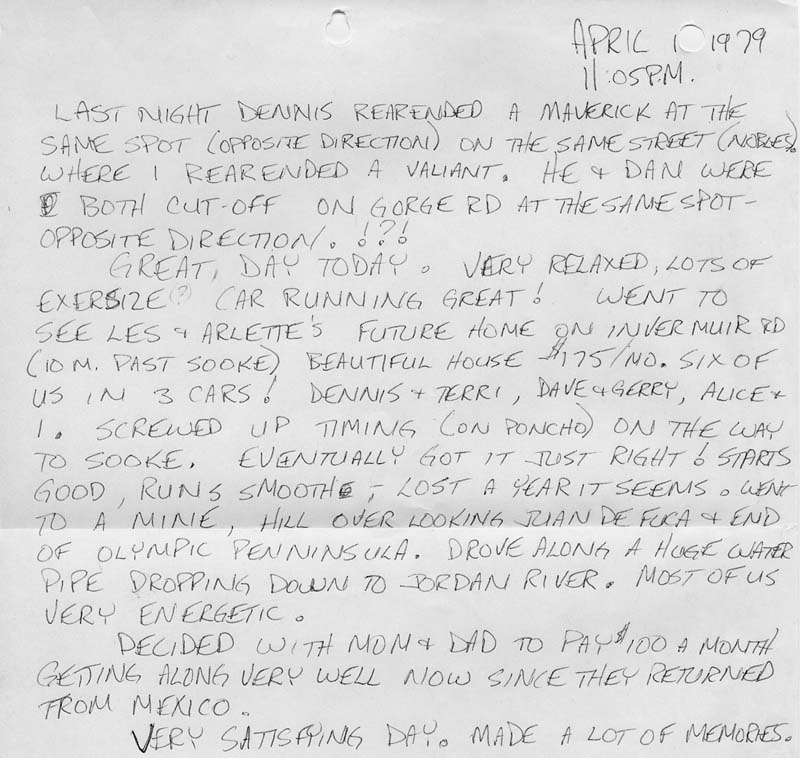 APRIL 1 1979
11:05 P.M.
LAST NIGHT DENNIS REARENDED A MAVERICK AT THE
SAME SPOT (OPPOSITE DIRECTION) ON THE SAME STREET (NOBLES)
WHERE I REARENDED A VALIANT. HE & DAN WERE
BOTH CUT-OFF ON GORGE RD AT THE SAME SPOT -
OPPOSITE DIRECTION. !?!
GREAT, DAY TODAY. VERY RELAXED, LOTS OF
EXERSIZE? CAR RUNNING GREAT! WENT TO
SEE LES & ARLETTE'S FUTURE HOME ON INVER MUIR RD
(10 M. PAST SOOKE) BEAUTIFUL HOUSE - $175/MO. SIX OF
US IN 3 CARS! DENNIS & TERRI, DAVE & GERRY, ALICE &
I. SCREWED UP TIMING (ON PONCHO) ON THE WAY
TO SOOKE. EVENTUALLY GOT IT JUST RIGHT! STARTS
GOOD, RUNS SMOOTHE, - LOST A YEAR IT SEEMS. WENT
TO A MINE, HILL OVER LOOKING JUAN DE FUCA & END
OF OLYMPIC PENNINSULA. DROVE ALONG A HUGE WATER
PIPE DROPPING DOWN TO JORDAN RIVER. MOST OF US
VERY ENERGETIC.
DECIDED WITH MOM & DAD TO PAY $100 A MONTH
GETTING ALONG VERY WELL NOW SINCE THEY RETURNED
FROM MEXICO.
VERY SATISFYING DAY. MADE A LOT OF MEMORIES.